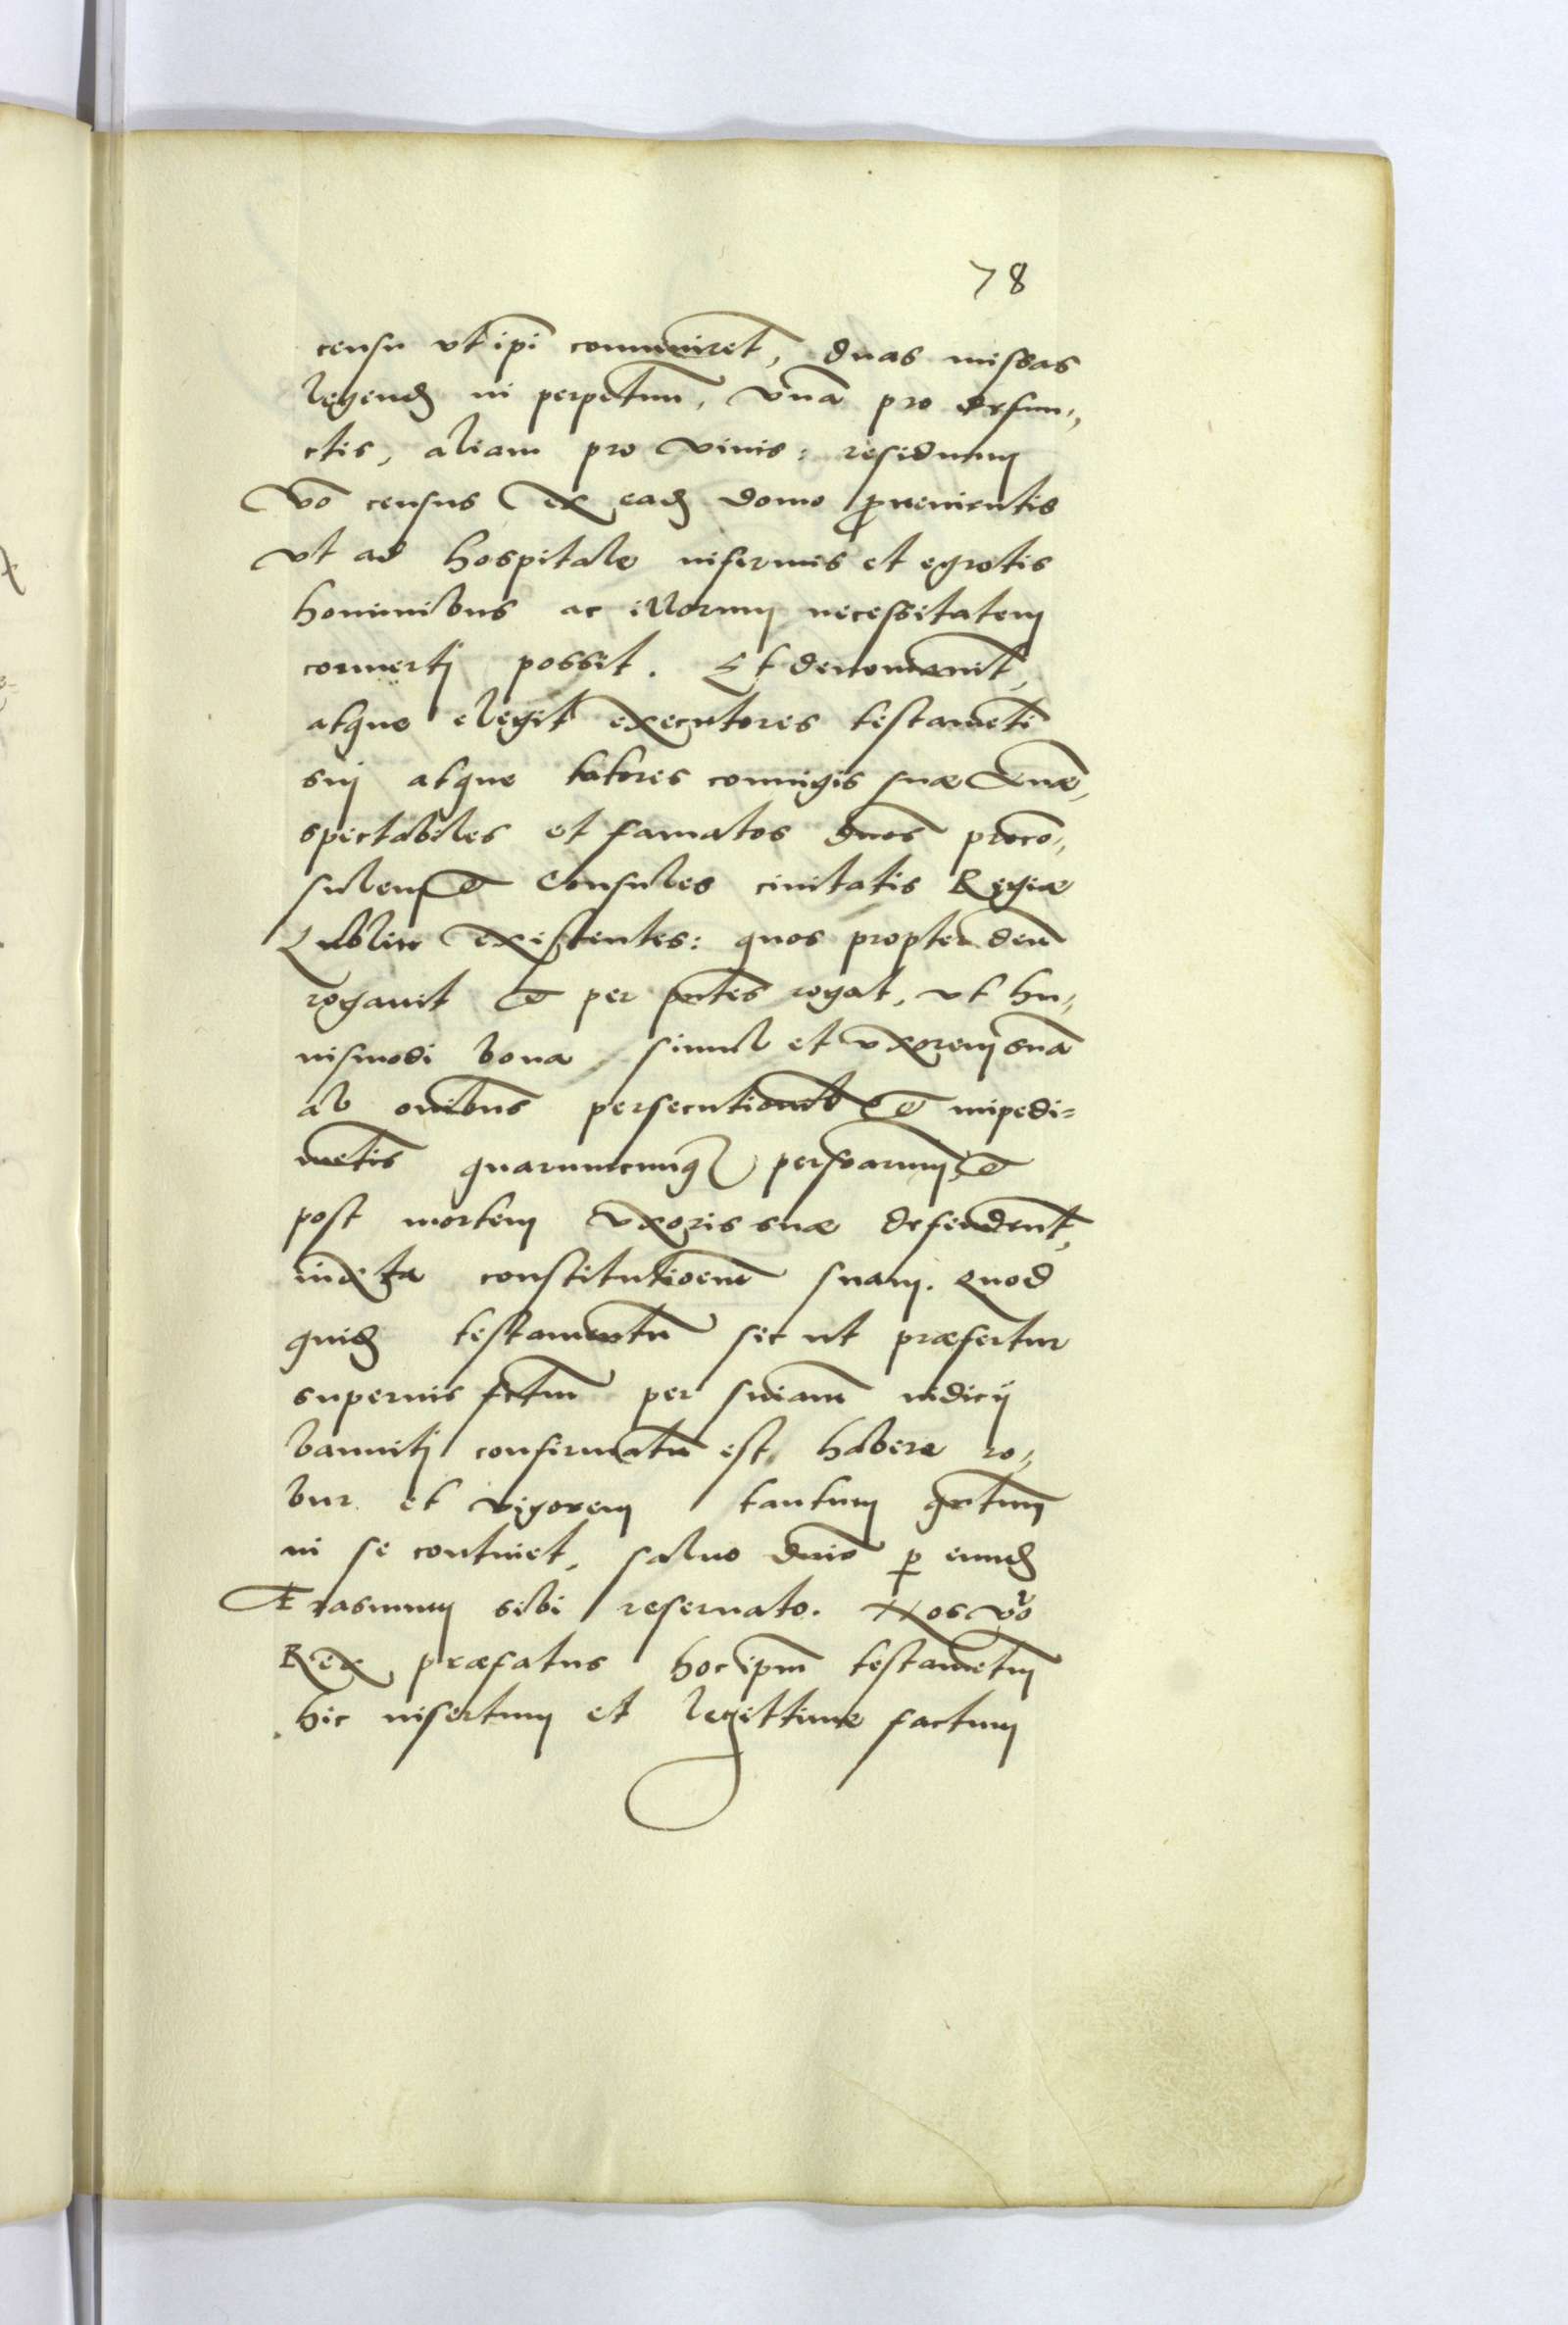 78
censu vt ip̃i conueniret, duas missas
legend in perpetuũ, vnã pro defun„
ctis, aliam pro viuis: residuum
vo census ex ead domo prouenientis
vt ad hospitale infirmis et egrotis
hominibus ac illorum necessitatem
conuertj possit. Et denominauit,
atque elegit executores testamẽti
suj atque tutores coniugis suæ Annæ,
spectabiles et famatos dños proco„
sulem et Consules ciuitatis Regiæ
Lublin existentes: quos propter deũ
rogauit et per pñtes rogat, vt hu„
iusmodi bona simul et vxorem suã
ab oñibus persecutionib et impedi=
mẽtis quarumcunq personarum, et
post mortem vxoris suæ defendent,
iuxta constitutioẽm suam. Quod
quid testamentũ sic ut præfertur
superius fctum per sniam iudicij
bannitj confirmatũ est, habere ro„
bur et vigorem tantum qntum
in se continet, saluo dnio p eund
Erasmum sibi reseruato. Nos vo
Rex præfatus hoc ipm testamẽtum
hic insertum et legittime factum